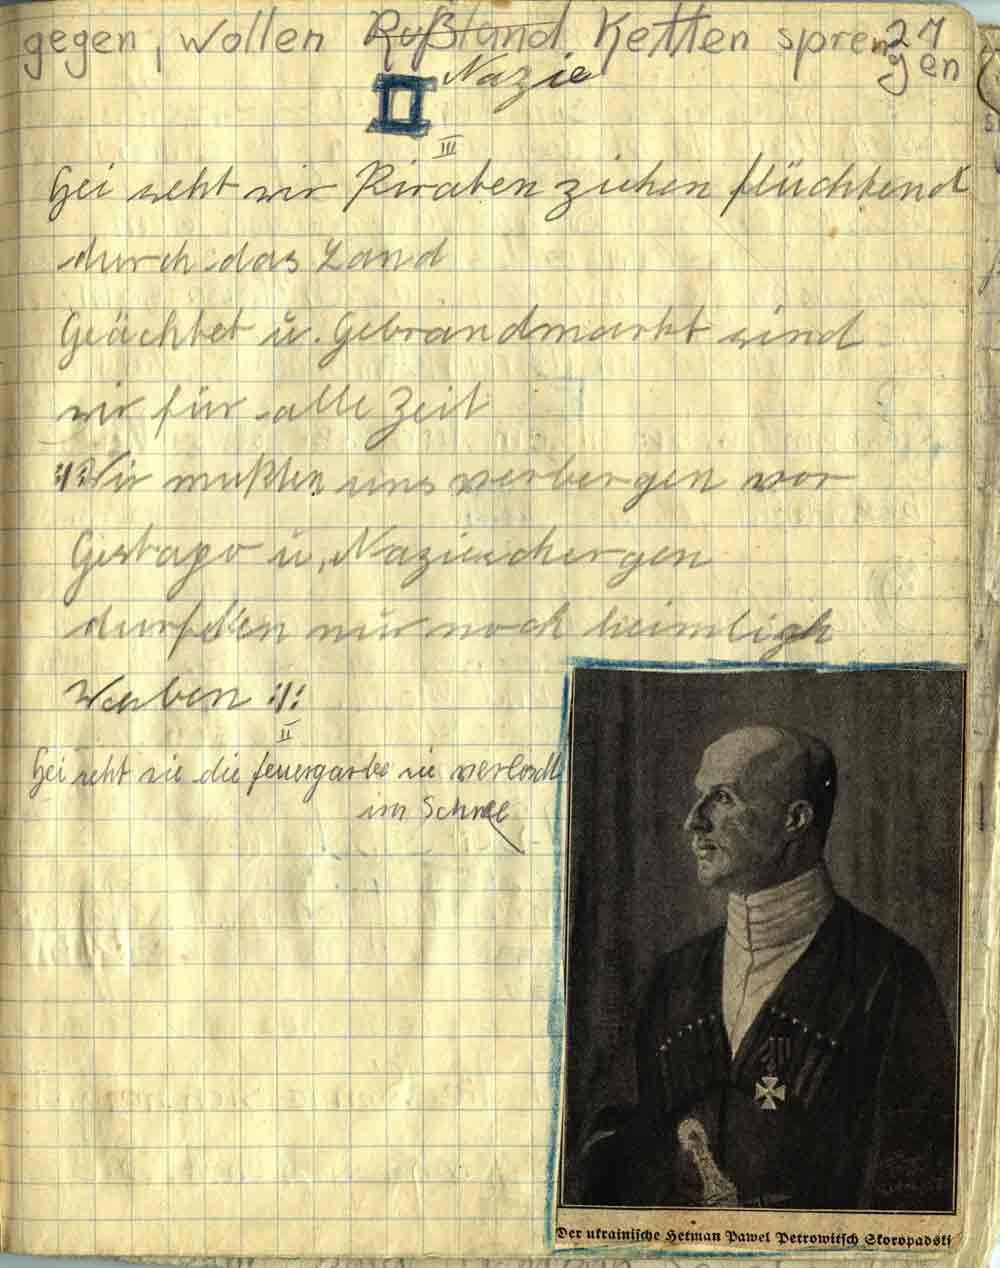 27
gegen, wollen Rußland Ketten sprengen
Nazie
III
Hei seht wir Piraten ziehen flüchtend
durch das Land
Geächtet u. Gebrandmarkt sind
wir für alle Zeit
:/: Wir mußten uns verbergen vor
Gestapo u. Nazieschergen
durften nur noch heimligh
Leben :/:
II
Hei seht sie die feuergarbe sie verloscht
im Schnee
Der ukrainische Hetman Pawel Petrowitsch Skoropadski